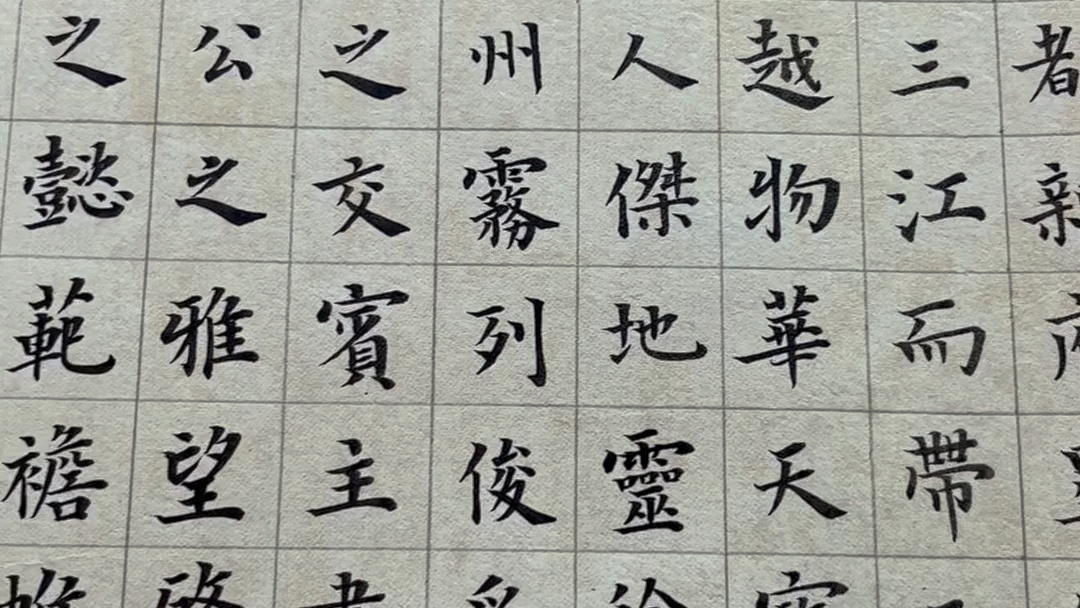 者
三江而帶
越物華天
人傑地靈
州霧列俊
之交賓主
公之雅望
之懿範襜